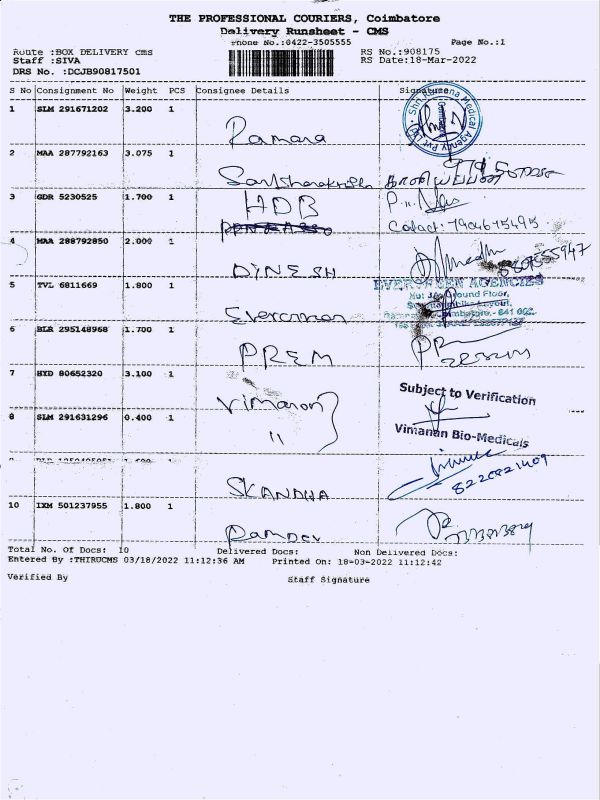 THE PROFESSIONAL COURIERS, Coimbatore
Delivery Runsheet - CMS
Phone No.:0422-3505555 Page No.:1
Route :BOX DELIVERY cms RS No.:908175
Staff :SIVA RS Date:18-Mar-2022
DRS No. :DCJB90817501
S No Consignment No Weight PCS Consignee Details Signature
1 SLM 291671202 3.200 1
Ramana
Shri Ramana Medical Agency Pvt Ltd
2 MAA 287792163 3.075 1
3 GDR 5230525 1.700 1
HDB
4 MAA 288792850 2.000 1
DINESH
5 TVL 6811669 1.800 1
EVERGREEN AGENCIES
Ground Floor,
6 BLR 295148968 1.700 1
PREM
7 HYD 80652320 3.100 1
Subject to Verification
8 SLM 291631296 0.400 1
"
Vimanan Bio-Medicals
SKANDHA
8220821409
10 IXM 501237955 1.800 1
Ramdev
Total No. Of Docs: 10 Delivered Docs: Non Delivered Docs:
Entered By :THIRUCMS 03/18/2022 11:12:36 AM Printed On: 18-03-2022 11:12:42
Verified By Staff Signature